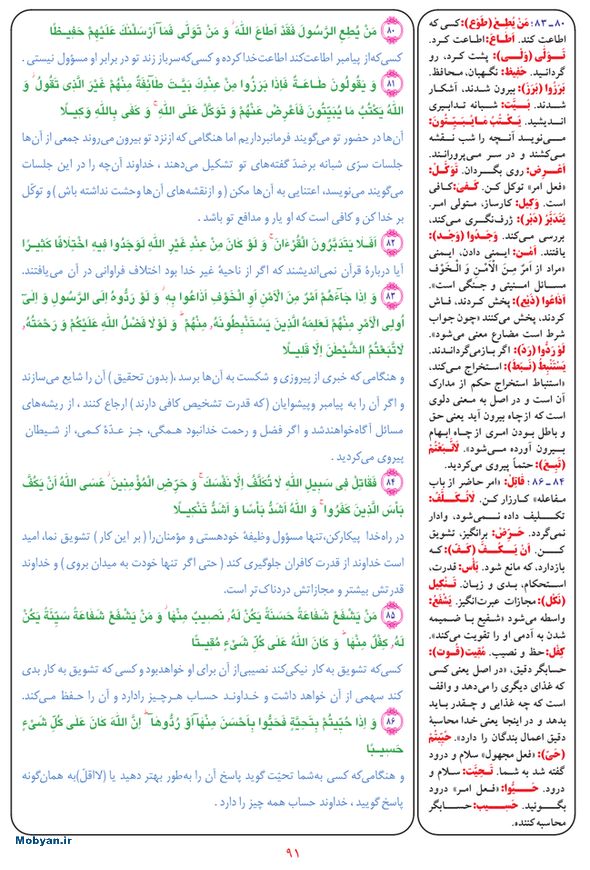 ۸۰ مَنْ یُطِعِ الرَّسُولَ فَقَدْ اَطَاعَ اللهَ ۚ وَ مَنْ تَوَلّٰی فَمَآ اَرْسَلْنٰکَ عَلَیْهِمْ حَفِیـظًا
کسی‌که از پیامبر اطاعت‌کند اطاعت‌خدا کرده و کسی‌که‌سرباز زند تو در برابر او مسؤول نیستی .
۸۱ وَ یَقُولُونَ طَـاعَـةٌ فَاِذَا بَرَزُوا مِنْ عِنْدِکَ بَیَّتَ طَآئِفَةٌ مِنْهُمْ غَیْرَ الَّذِی تَقُولُ ۖ وَ
اللهُ یَکْتُبُ مَا یُبَیِّتُونَ فَاَعْرِضْ عَنْهُمْ وَ تَوَکَّلْ عَلَی اللهِ ۚ وَ کَفٰی بِاللهِ وَکِیـلًا
آن‌ها در حضور تو می‌گویند فرمانبرداریم اما هنگامی که ازنزد تو بیرون می‌روند جمعی از آن‌ها
جلسات سرّی شبانه برضدّ گفته‌های تو تشکیل می‌دهند ، خداوند آن‌چه را در این جلسات
می‌گویند می‌نویسد، اعتنایی به آن‌ها مکن ( و ازنقشه‌های آن‌ها وحشت نداشته باش ) و توکّل
بر خدا کن و کافی است که او یار و مدافع تو باشد .
۸۲ اَفَـلَا یَتَدَبَّرُونَ الْقُرْءَانَ ۚ وَ لَوْ کَانَ مِنْ عِنْدِ غَیْرِ اللهِ لَوَجَدُوا فِیهِ اخْتِلَافًا کَثِیـرًا
آیا دربارهٔ قرآن نمی‌اندیشند که اگر از ناحیهٔ غیر خدا بود اختلاف فراوانی در آن می‌یافتند.
۸۳ وَ اِذَا جَآءَهُمْ اَمْرٌ مِنَ الْاَمْنِ اَوِ الْخَوْفِ اَذَاعُوا بِهِ ۖ وَ لَوْ رَدُّوهُ اِلَی الرَّسُولِ وَ اِلٰی
اُولِی الْاَمْرِ مِنْهُمْ لَعَلِمَهُ الَّذِینَ یَسْتَنْبِطُونَهُ مِنْهُمْ ۗ وَ لَوْلَا فَضْلُ اللهِ عَلَیْکُمْ وَ رَحْمَتُهُ
لَاتَّبَعْتُمُ الشَّیْطٰنَ اِلَّا قَلِیـلًا
و هنگامی‌که خبری از پیروزی و شکست به آن‌ها برسد ،(بدون تحقیق ) آن را شایع می‌سازند
و اگر آن را به پیامبر وپیشوایان (که قدرت تشخیص کافی دارند) ارجاع کنند ، از ریشه‌های
مسائل آگاه‌خواهندشد و اگر فضل و رحمت خدانبود همگی، جز عدّهٔ کـمی، از شیطان
پیروی می‌کردید .
۸۴ فَقَاتِلْ فِی سَبِیلِ اللهِ لَا تُکَلَّفُ اِلَّا نَفْسَکَ ۚ وَ حَرِّضِ الْمُؤْمِنِینَ ۖ عَسَی اللهُ اَنْ یَکُفَّ
بَأْسَ الَّذِینَ کَفَرُوا ۚ وَ اللهُ اَشَدُّ بَأْسًا وَ اَشَدُّ تَنْکِیـلًا
در راه‌خدا پیکارکن،تنها مسؤول وظیفهٔ خودهستی و مؤمنان‌را ( بر این کار ) تشویق نما، امید
است خداوند از قدرت کافران جلوگیری کند ( حتی اگر تنها خودت به میدان بروی ) و خداوند
قدرتش بیشتر و مجازاتش دردناک‌تر است.
۸۵ مَنْ یَشْفَعْ شَفَاعَةً حَسَنَةً یَکُنْ لَهُ نَصِیبٌ مِنْهَا ۖ وَ مَنْ یَشْفَعْ شَفَاعَةً سَیِّئَةً یَکُنْ
لَهُ کِفْلٌ مِنْهَا ۗ وَ کَانَ اللهُ عَلٰی کُلِّ شَیْءٍ مُقِیـتًا
کسی‌که تشویق به کار نیکی‌کند نصیبی‌از آن برای او خواهدبود و کسی که تشویق به کار بدی
کند سهمی از آن خواهد داشت و خداوند حساب هرچیز رادارد و آن را حفظ می‌کند.
۸۶ وَ اِذَا حُیِّیتُمْ بِتَحِیَّةٍ فَحَیُّوا بِاَحْسَنَ مِنْهَآ اَوْ رُدُّوهَآ ۗ اِنَّ اللهَ کَانَ عَلٰی کُلِّ شَیْءٍ
حَسِیـبًا
و هنگامی‌که کسی به‌شما تحیّت گوید پاسخ آن را به‌طور بهتر دهید یا (لااقل)به همان‌گونه
پاسخ گویید ، خداوند حساب همه چیز را دارد .
۸۰ ـ ۸۳: مَنْ یُطِعِ (طَوَعَ): کسی که
اطاعت کند. اَطَاعَ: اطاعت کرد.
تَوَلّٰی (وَلْی): پشت کرد، رو
گردانید. حَفِیظ: نگهبان، محافظ.
بَرَزُوا (بَرَزَ): بیرون شدند، آشکار
شدند. بَیَّتَ: شبانه تدابیری
اندیشید. یَکْتُبُ مَایُبَیِّتُونَ:
می‌نویسد آنچه را شب نقشه
می‌کشند و در سر می‌پرورانند.
اَعْرِضْ: روی بگردان. تَوَکَّلْ:
«فعل امر» توکل کن. کَفٰی: کافی
است. وَکِیل: کارساز، متولی امر.
یَتَدَبَّرُ (دَبَرَ): ژرف‌نگری می‌کند،
بررسی می‌کند. وَجَدُوا (وَجَدَ):
یافتند. اَمْن: ایمنی دادن، ایمنی
«مراد از اَمْرٌ مِنَ الْاَمْنِ وَ الْخَوْفِ
مسائل امنیتی و جنگی است».
اَذَاعُوا (ذَیَعَ): پخش کردند، فاش
کردند، پخش می‌کنند «چون جواب
شرط است مضارع معنی می‌شود».
لَوْ رَدُّوا (رَدَّ): اگر بازمی‌گرداندند.
یَسْتَنْبِطُ (نَبَطَ): استخراج می‌کند،
«استنباط استخراج حکم از مدارک
آن است و در اصل به معنی دلوی
است که ازچاه بیرون آید یعنی حق
و باطل بودن امری از چاه ابهام
بیرون آورده می‌شود». لَاتَّبَعْتُمْ
(تَبِعَ): حتماً پیروی می‌کردید.
۸۴ ـ ۸۶: قَاتِلْ: «امر حاضر از باب
مفاعله» کارزار کن. لَاتُکَلَّفُ:
تکلیف داده نمی‌شود، وادار
نمی‌گردد. حَرِّضْ: برانگیز، تشویق
کن. اَنْ یَکُفَّ (کَفَّ): که
بازدارد، که مانع شود. بَأْس: قدرت،
استحکام، بدی و زیان. تَنْکِیل
(نَکَلَ): مجازات عبرت‌انگیز. یَشْفَعْ:
واسطه می‌شود «شفیع با ضمیمه
شدن به آدمی او را تقویت می‌کند».
کِفْل: حظ و نصیب. مُقِیت (قَوَتَ):
حسابگر دقیق، «در اصل یعنی کسی
که غذای دیگری را می‌دهد و واقف
است که چه غذایی و چقدر باید
بدهد و در اینجا یعنی خدا محاسبهٔ
دقیق اعمال بندگان را دارد». حُیِّیتُمْ
(حَیَّ): «فعل مجهول» سلام و درود
گفته شد به شما. تَحِیَّت: سلام و
درود. حَیُّوا: «فعل امر» درود
بگوئید. حَسِیب: حسابگر
محاسبه کننده.
Mobyan.ir
۹۱